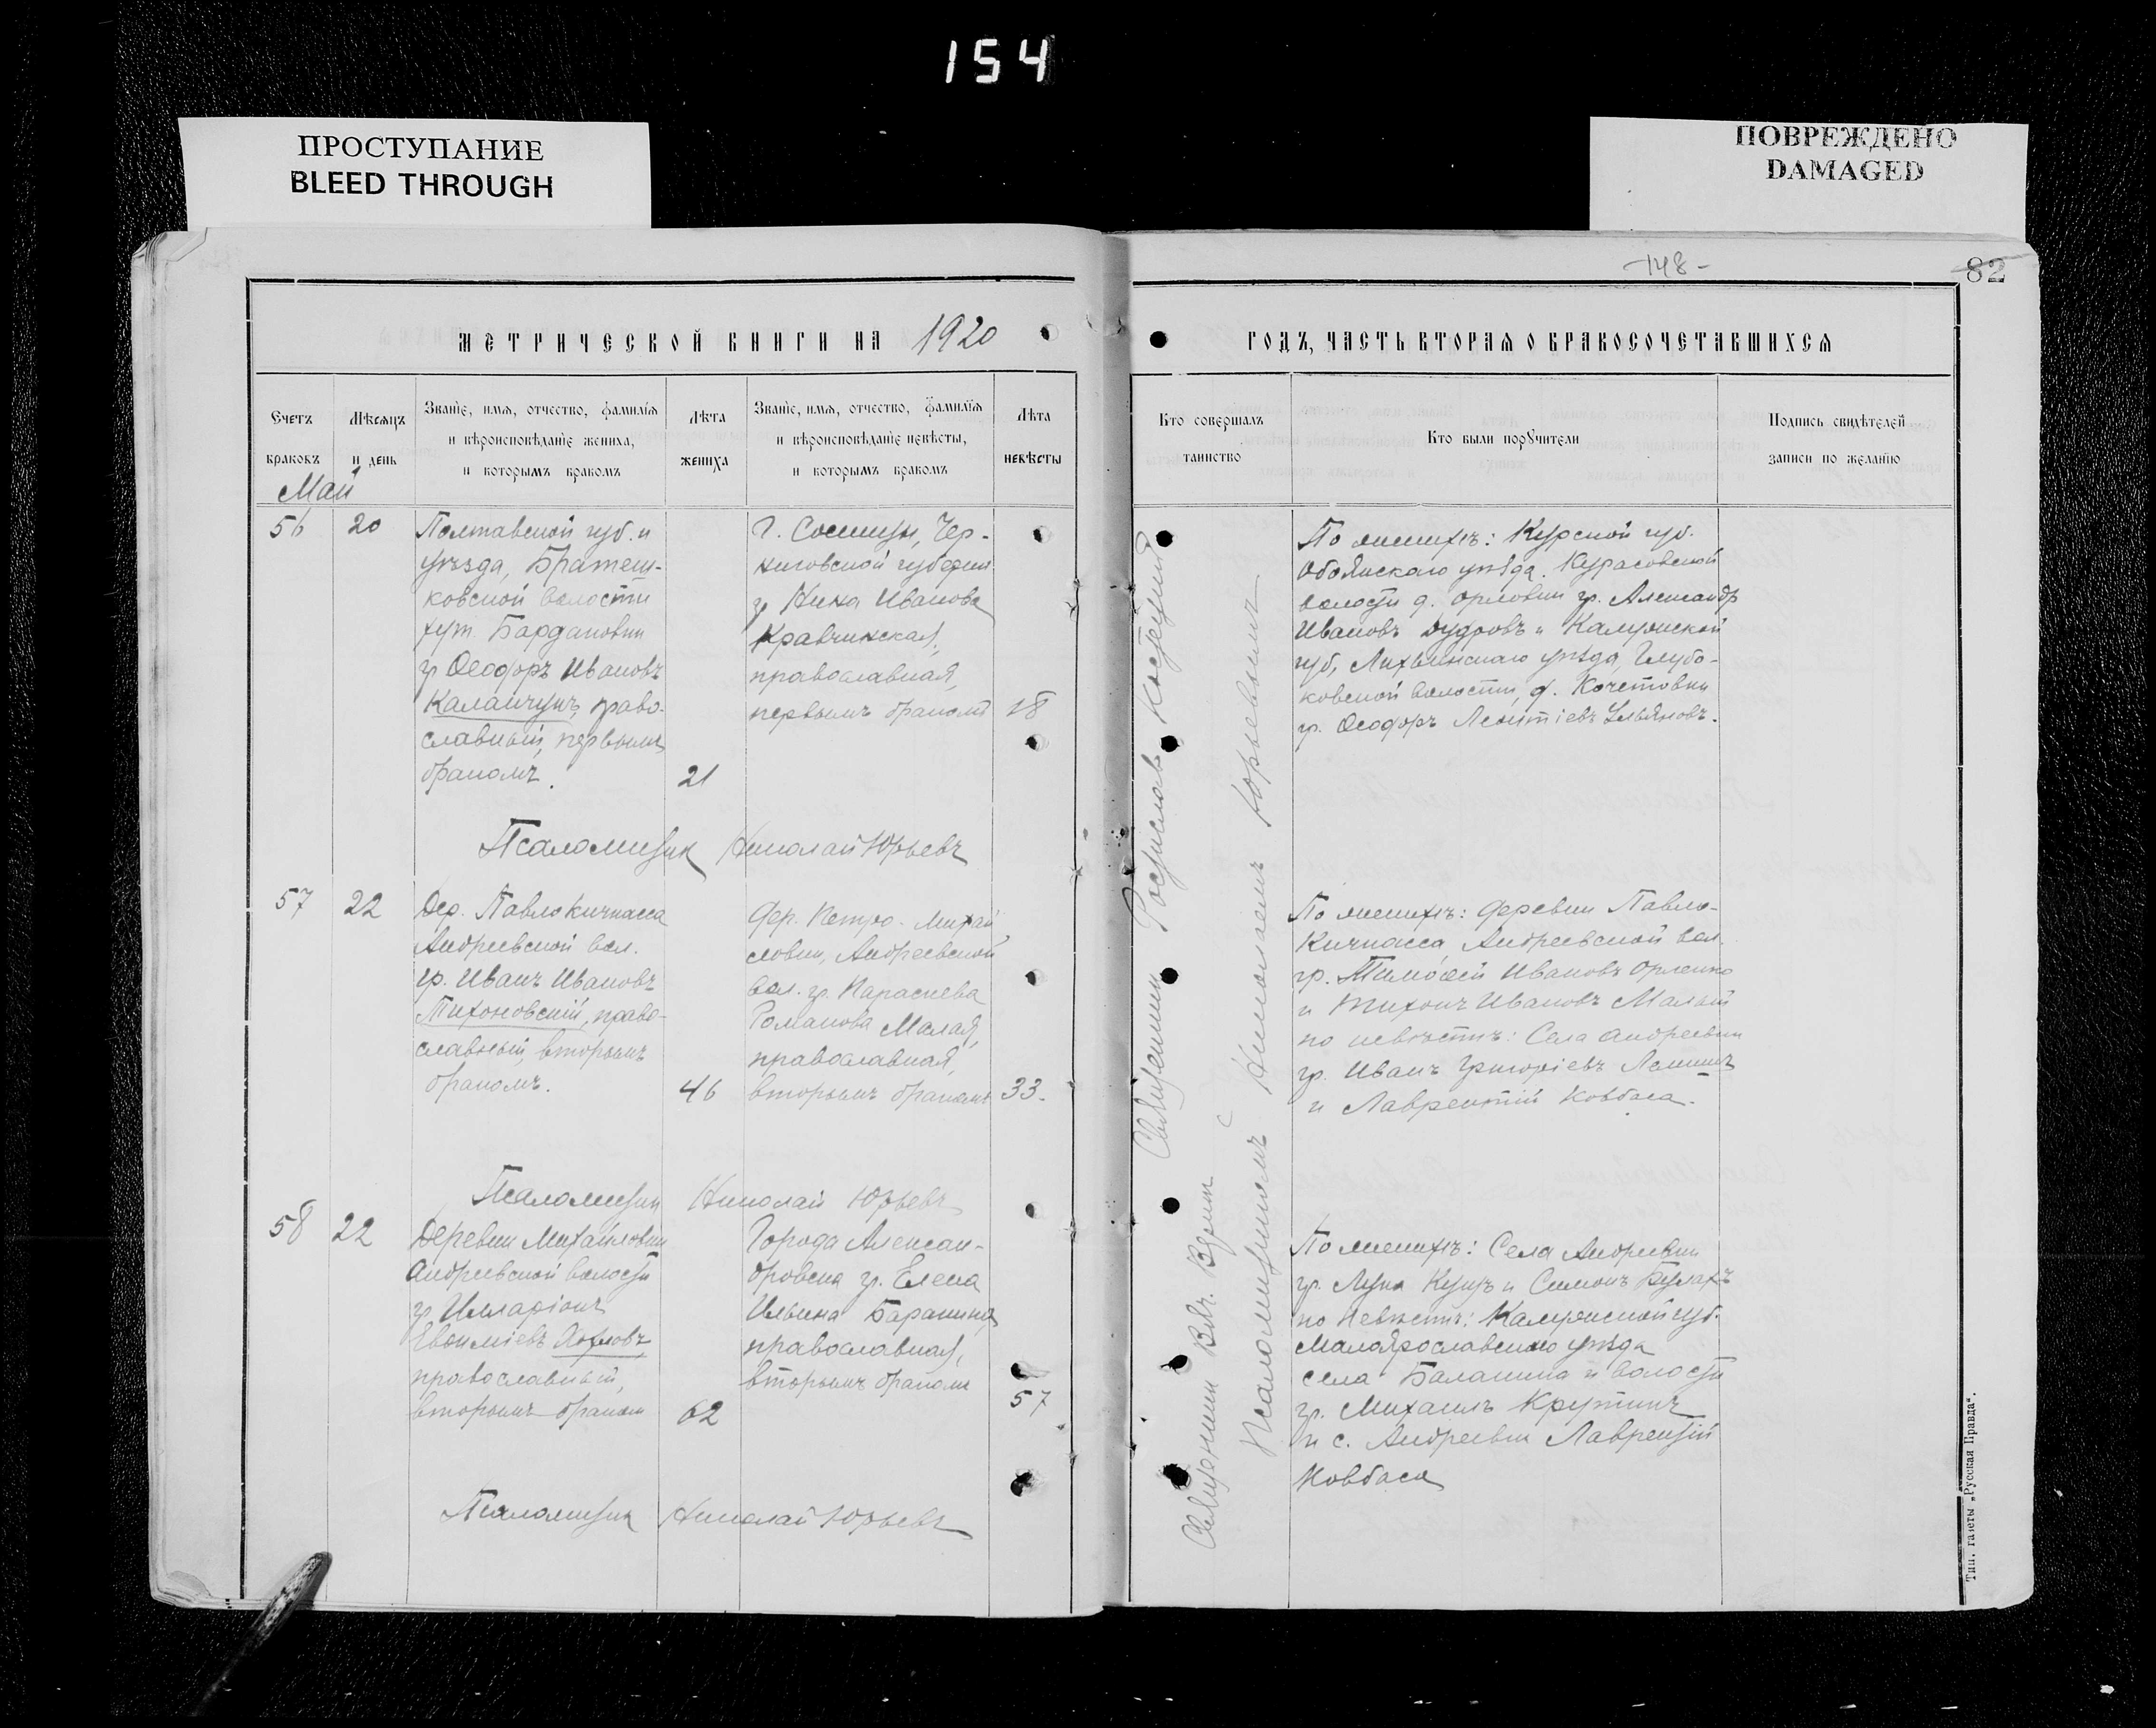 154
ПРОСТУПАНИЕ
BLEED THROUGH
ПОВРЕЖДЕНО
DAMAGED
-148-
82
МЕТРИЧЕСКОЙ КНИГИ НА 1920
ГОДЪ, ЧАСТЬ ВТОРАЯ О БРАКОСОЧЕТАВШИХСЯ
Счетъ
браковъ
Мѣсяцъ
и день
Званіе, имя, отчество, фамилія
и вѣроисповѣданіе жениха,
и которымъ бракомъ
Лѣта
жениха
Званіе, имя, отчество, фамилія
и вѣроисповѣданіе невѣсты,
и которымъ бракомъ
Лѣта
невѣсты
Кто совершалъ
таинство
Кто были поручители
Подпись свидѣтелей
записи по желанію
Май
56
20
Полтавской губ. и
уѣзда, Братеш-
ковской волости
хут. Бардановки
гр Ѳеодоръ Ивановъ
Каланчукъ, право-
славный, первымъ
бракомъ.
21
Г. Сосницы, Чер-
ниговской губерніи
гр Нина Иванова
Кравчинская,
православная,
первымъ бракомъ
18
По женихѣ: Курской губ.
Обоянскаго уѣзда, Курасовской
волости д. Орловки гр. Александр
Ивановъ Дудровъ и Калужской
губ, Лихвинскаго уѣзда, Глубо-
ковской волости, д. Кочетовки
гр. Ѳеодоръ Леонтіевъ Ульяновъ.
Псаломщик Николай Юрьевъ
57
22
Дер. Павло Кичкасса
Андреевской вол.
гр. Иванъ Ивановъ
Тихоновскій, право-
славный, вторымъ
бракомъ.
46
Дер. Петро-Михай
ловки, Андреевской
вол. гр. Параскева
Романова Малая,
православная,
вторымъ бракомъ
33.
По женихѣ: деревни Павло-
Кичкасса, Андреевской вол.
гр. Тимоѳей Ивановъ Орленко
и Тихонъ Ивановъ Малый
по невѣстѣ: Села Андреевки
гр. Иванъ Григоріевъ
и Лаврентій Ковбаса.
Псаломщик Николай Юрьевъ
58
22
Деревни Михайловки
Андреевской волости
гр Илларіонъ
Евѳиміевъ Хохловъ,
православный,
вторымъ браком
62
Города Алексан-
дровска гр. Елена
Ильина Баранина
православная,
вторымъ браком
57
По женихѣ: Села Андреевки
гр. Лука Куцъ и Симонъ Булахъ
по Невѣстѣ: Калужской губ.
Малоярославскаго уѣзда
села Балакина и волости
гр. Михаилъ Крутинъ
и с. Андреевки Лаврентій
Ковбаса
Псаломщик Николай Юрьевъ
Священник Ростислав
Священник Вл.
Псаломщикомъ Николаемъ Юрьевымъ
Тип. газеты „Русская Правда“.